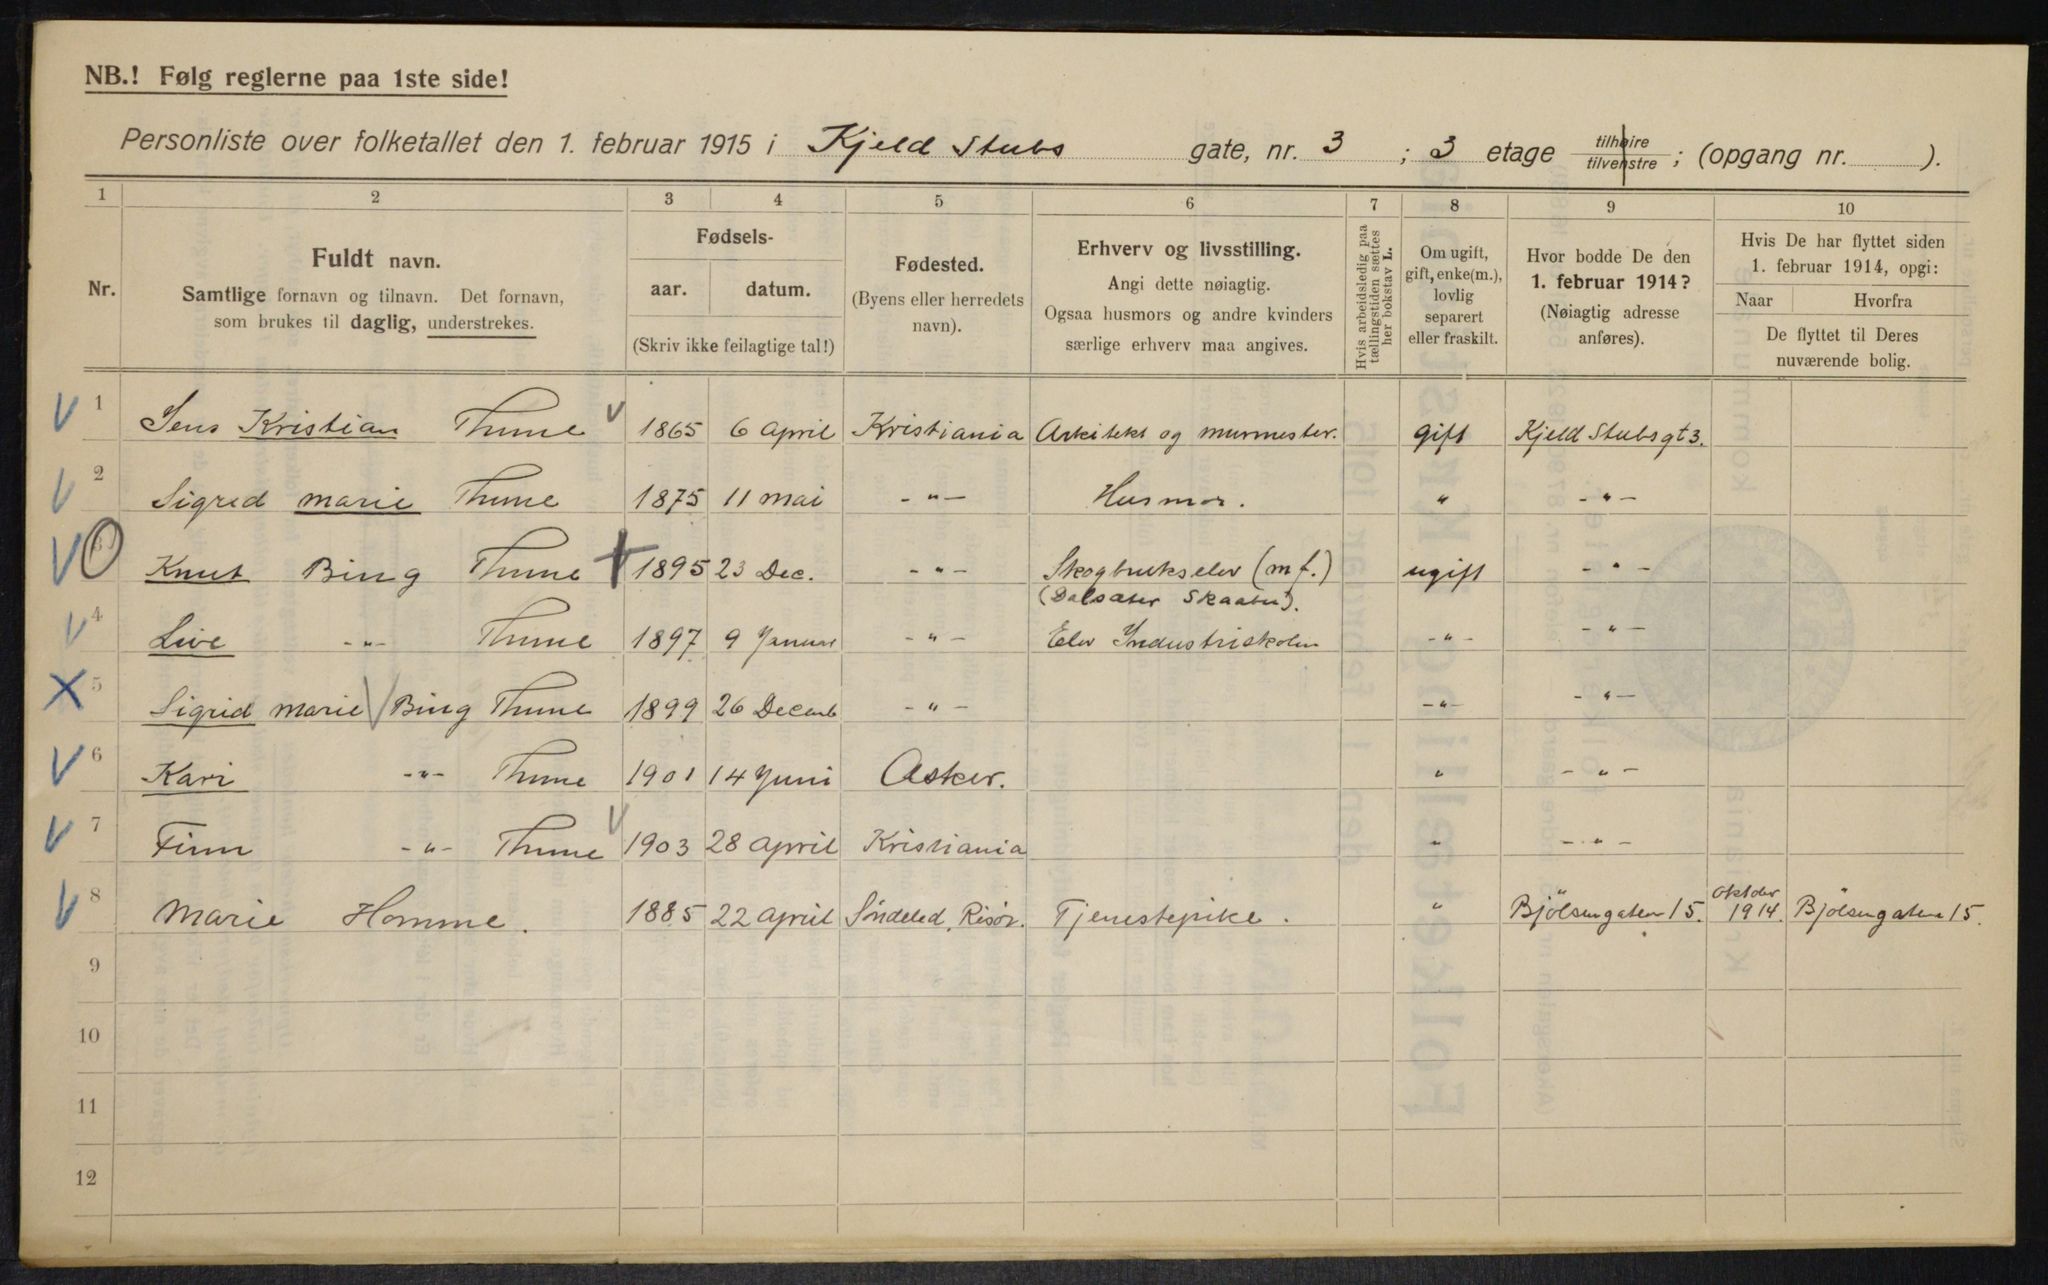 NB.! Følg reglerne paa 1ste side!
Personliste over folketallet den 1. februar 1915 i Kjeld Stubs gate, nr. 3 ; 3 etage tilhøire tilvenstre ; (opgang nr. ).
1 2 3 4 5 6 7 8 9 10
Nr.
Fuldt navn.
Samtlige fornavn og tilnavn. Det fornavn,
som brukes til daglig, understrekes.
Fødsels-
aar. datum.
(Skriv ikke feilagtige tal!)
Fødested.
(Byens eller herredets
navn).
Erhverv og livsstilling.
Angi dette nøiagtig.
Ogsaa husmors og andre kvinders
særlige erhverv maa angives.
Hvis arbeidsledig paa
tællingstiden sættes
her bokstav L.
Om ugift,
gift, enke(m.),
lovlig
separert
eller fraskilt.
Hvor bodde De den
1. februar 1914?
(Nøiagtig adresse
anføres).
Hvis De har flyttet siden
1. februar 1914, opgi:
Naar Hvorfra
De flyttet til Deres
nuværende bolig.
1 Jens Kristian Thune 1865 6 april Kristiania Arkitekt og murmester. gift Kjeld Stubsgt 3.
2 Sigred Marie Thune 1875 11 mai -"- Husmor. " -"-
3 Knut Bing Thune 1895 23 Dec. -"- Skogbrukselev (m f.) ugift -"-
4 Live -"- Thune 1897 9 Januar -"- Elev Industriskolen -"- -"-
5 Sigrid Marie Bing Thune 1899 26 Decemb -"- -"- -"-
6 Kari -"- Thune 1901 14 Juni Asker. " -"-
7 Finn -"- Thune 1903 28 april Kristiania " -"-
8 Marie Homme. 1885 22 april Söndeled, Risör. Tjenestepike. " Bjölsengaten 15. Oktober 1914. Bjölsengaten 15.
9
10
11
12